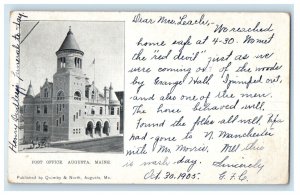 Dear Mrs. Leach:-
We reached
home safe at 4-30. We met
the "red devil" just as we
were coming out of the woods
by Grange Hall. I jumped out,
and also one of the men.
The horse behaved well.
Found the folks all well, but
had gone to N. Manchester
with Mr. Morris. Well this
is wash day. Sincerely
Oct 30, 1905. E.F.C.
POST OFFICE AUGUSTA, MAINE.
Published by Quimby & North, Augusta, Me.